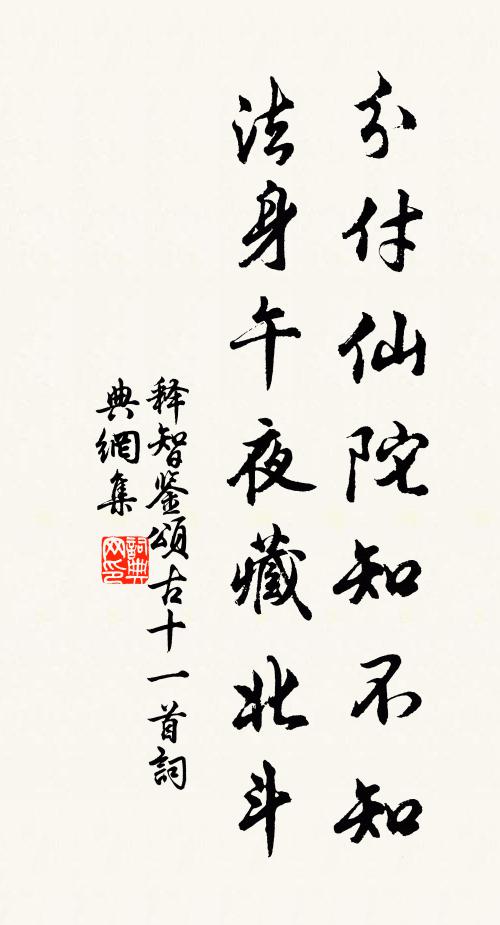 分付仙陀知不知
法身午夜藏北斗
释智鉴頌古十一首詞
典網集
詞典
网印